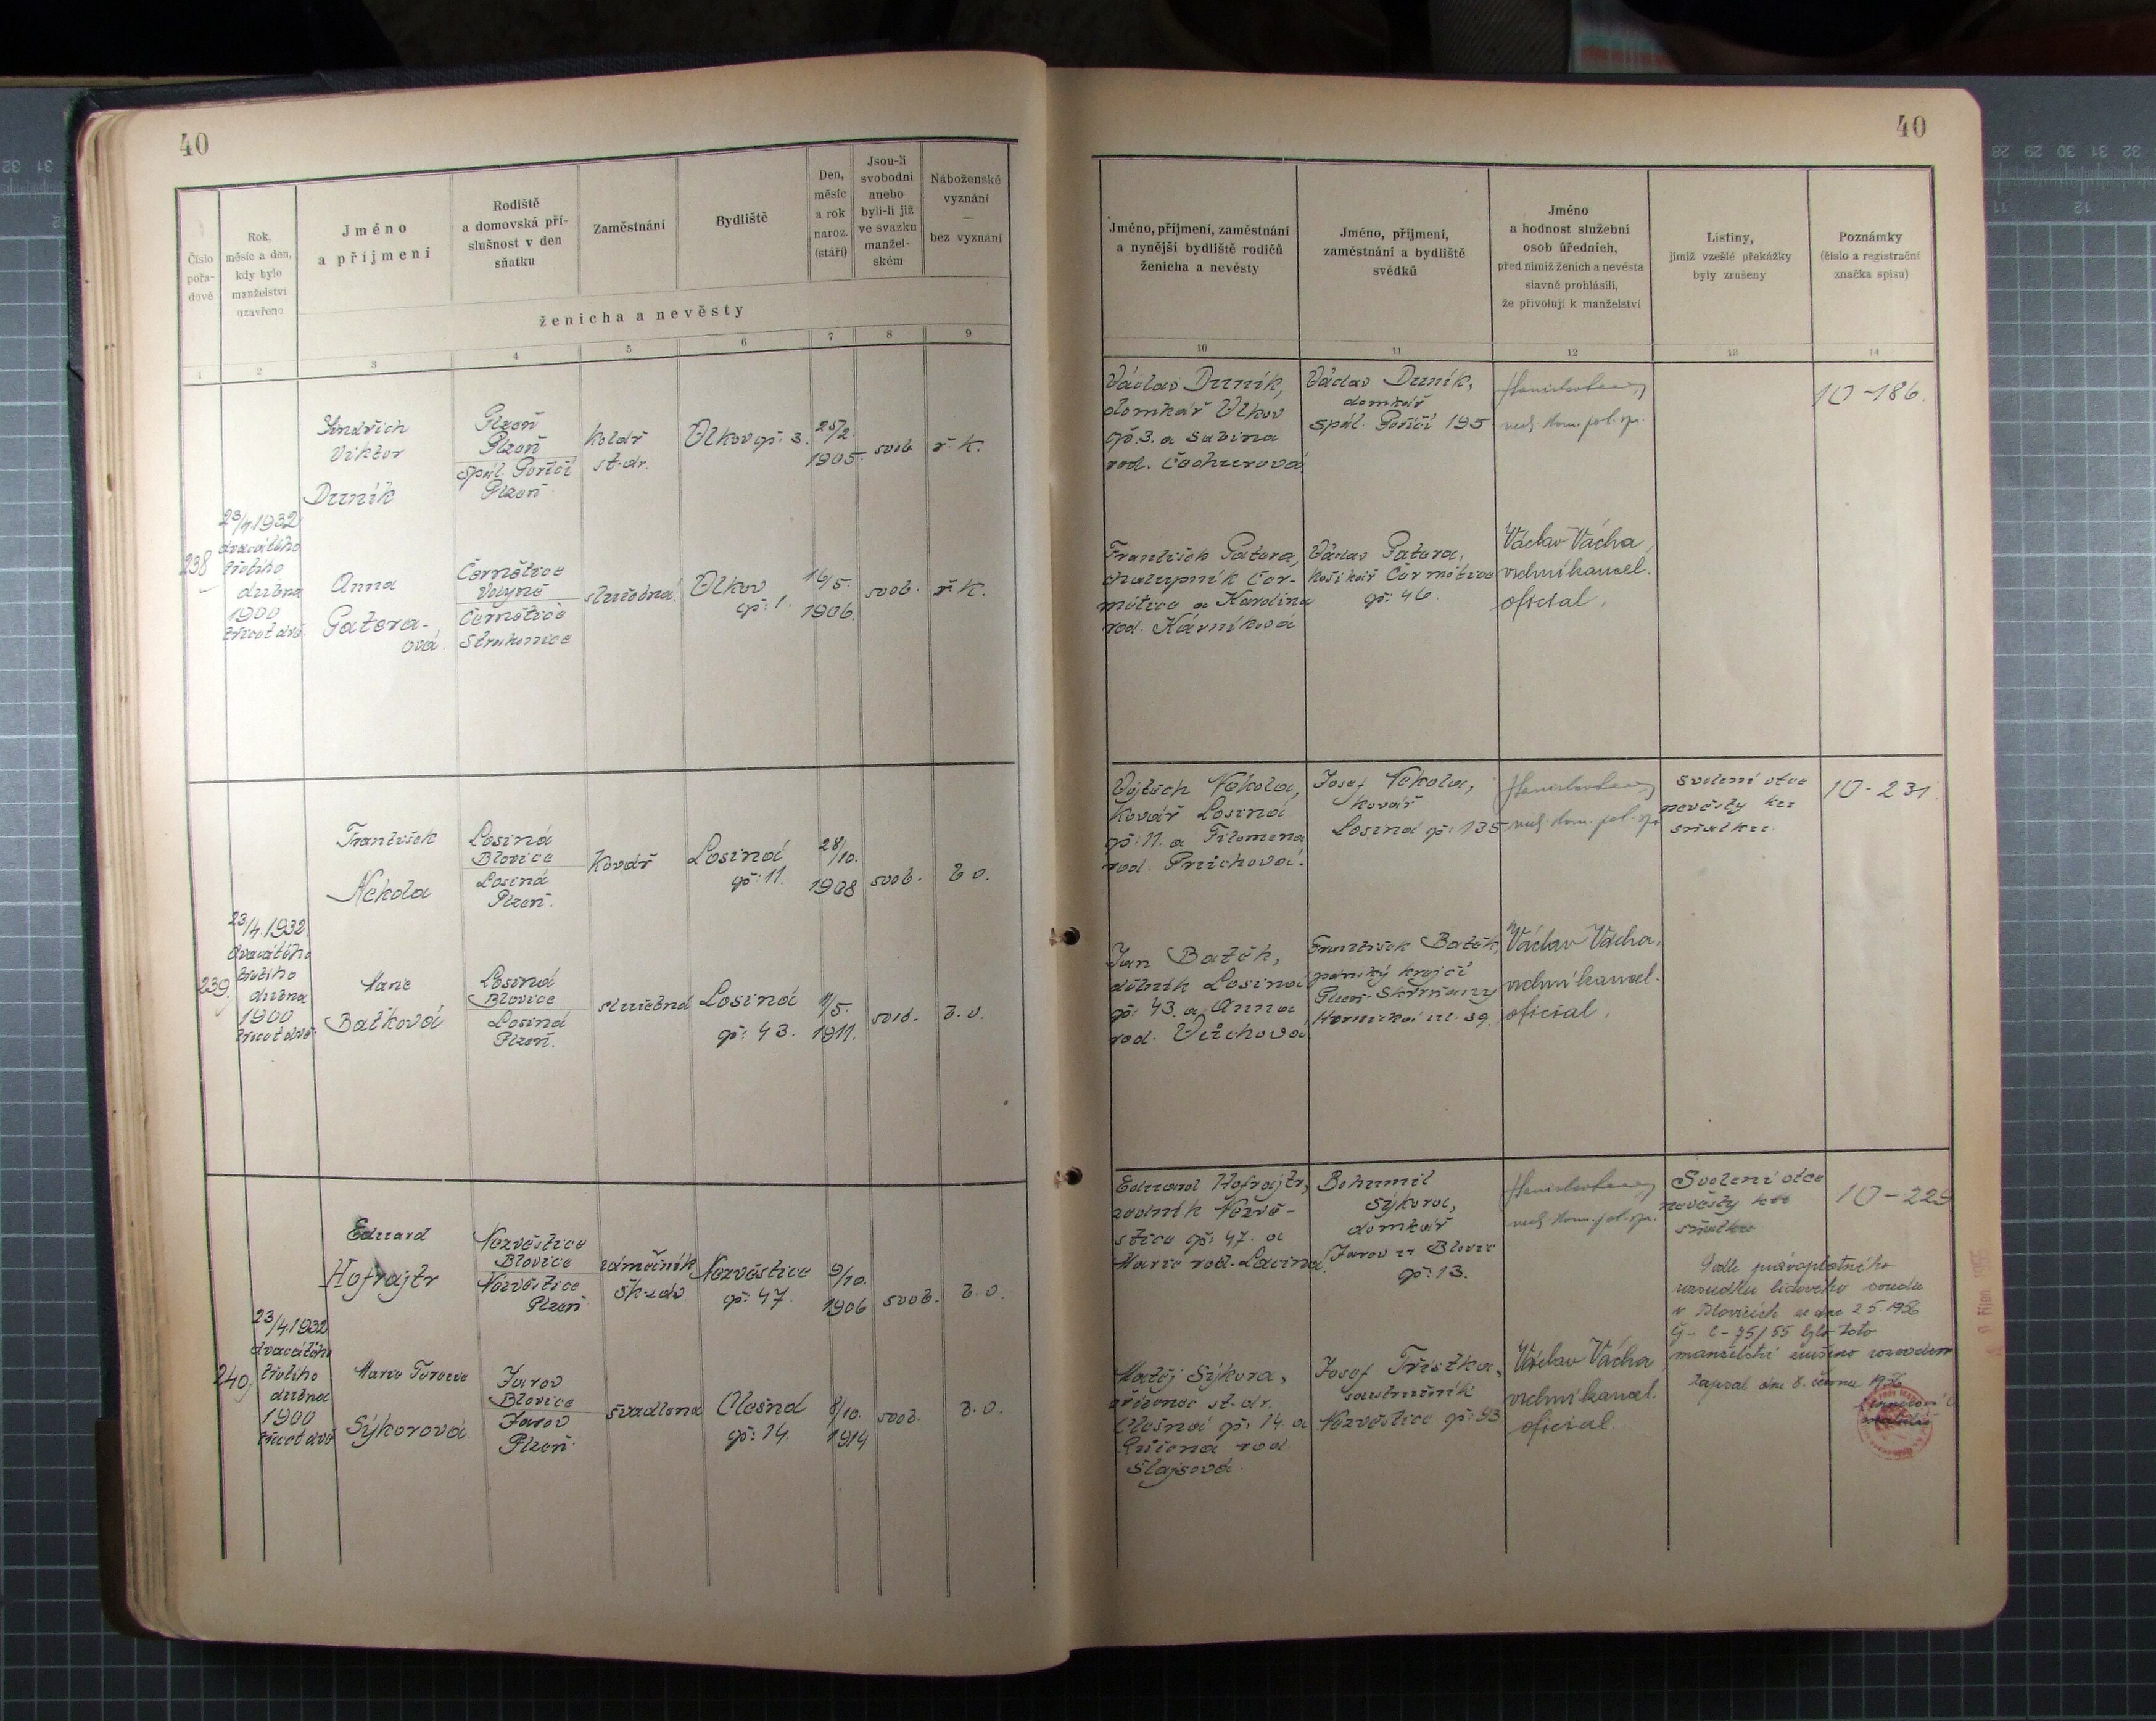 40
40
Číslo pořa- dové
Rok, měsíc a den, kdy bylo manželství uzavřeno
Jméno a příjmení
Rodiště a domovská pří- slušnost v den sňatku
Zaměstnání
Bydliště
Den, měsíc a rok naroz. (stáří)
Jsou-li svobodni anebo byli-li již ve svazku manžel- ském
Náboženské vyznání — bez vyznání
ženicha a nevěsty
1 2 3 4 5 6 7 8 9
Jméno, příjmení, zaměstnání a nynější bydliště rodičů ženicha a nevěsty
Jméno, příjmení, zaměstnání a bydliště svědků
Jméno a hodnost služební osob úředních, před nimiž ženich a nevěsta slavně prohlásili, že přivolují k manželství
Listiny, jimiž vzešlé překážky byly zrušeny
Poznámky (číslo a registrační značka spisu)
10 11 12 13 14
238
23/4.1932
dvacátého
třetího
dubna
1900
třicet dvě
Jindřich
Viktor
Duník
Plzeň
Plzeň
Spál. Poříčí
Plzeň
Kolář
st. dr.
Vlkov čp: 3.
25/2.
1905.
svob.
ř. k.
Anna
Patera-
ová
Černětice
Volyně
Černětice
Strakonice
služebná
Vlkov
čp: 1.
16/5.
1906.
svob.
ř. k.
Václav Duník,
domkář Vlkov
čp. 3. a Sabina
rod.
Václav Duník,
domkář
spál. Poříčí 195
10-186.
František Patera,
chalupník Čer-
nětice a Karolina
rod. Kárníková
Václav Patera,
košíkář Černětice
čp: 46.
Václav Vácha,
vrchní kancel.
oficial.
239.
23/4.1932.
dvacátého
třetího
dubna
1900
třicet dvě
František
Nekola
Losiná
Blovice
Losiná
Plzeň.
Kovář
Losiná
čp: 11.
28/10.
1908
svob.
b. v.
Marie
Baťková
Losiná
Blovice
Losiná
Plzeň.
služebná
Losiná
čp: 43.
1911.
svob.
b. v.
Vojtěch Nekola,
Kovář Losiná
čp: 11. a Filomena
rod. Průchová.
Josef Nekola,
kovář
Losiná čp: 135
svolení otce
nevěsty ku
sňatku.
10-231
Jan Batěk,
dělník Losiná
čp: 43. a Anna
rod.
František Batěk,
pánský krejčí
Plzeň-Skvrňany
ul. 39.
Václav Vácha,
vrchní kancel.
oficial.
240
23/4.1932
dvacátého
třetího
dubna
1900
třicet dvě
Eduard
Hofrajtr
Nezvěstice
Blovice
Nezvěstice
Plzeň
zámečník
Šk. záv.
Nezvěstice
čp: 47.
9/10.
1906
svob.
b. v.
Marie Terezie
Sýkorová
Jarov
Blovice
Jarov
Plzeň.
švadlena
Olešná
čp: 14.
8/10.
1914
svob.
b. v.
Eduard Hofrajtr,
Nezvě-
stice čp: 47. a
Marie rod. Lacina
Bohumil
Sýkora,
domkář
Jarov u Blovic
čp: 13.
Svolení otce
nevěsty ku
sňatku
10-229
Podle právoplatného
rozsudku lidového soudu
v Blovicích ze dne 2.5.1956
čj - C - 75/55 bylo toto
manželství zrušeno rozvodem
Zapsal dne 8. června 1956
Matěj Sýkora,
zřízenec st. dr.
Olešná čp: 14. a
Růžena rod.
Šlajsová.
Josef Třístka,
soustružník
Nezvěstice čp: 93
Václav Vácha
vrchní kancel.
oficial.